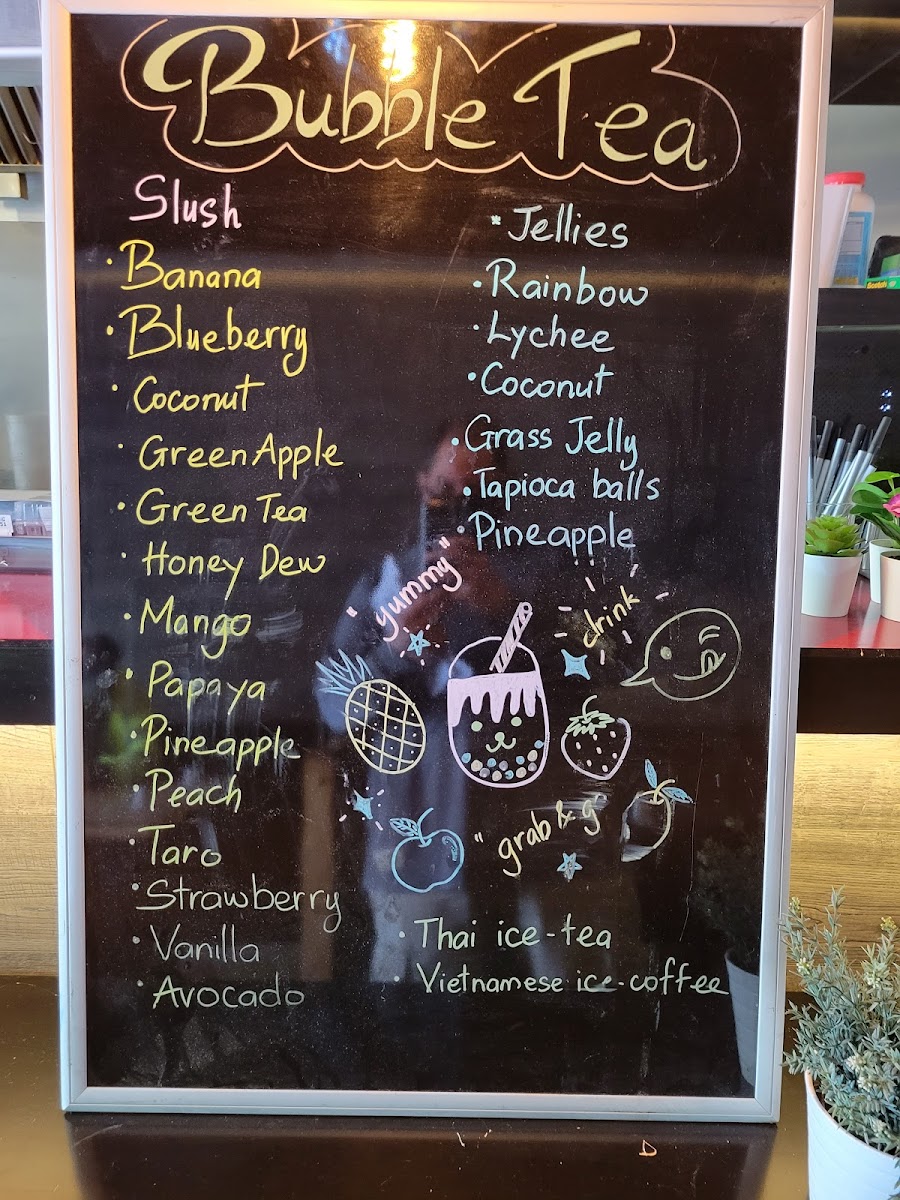 Bubble Tea
Slush
· Banana
· Blueberry
· Coconut
· Green Apple
· Green Tea
· Honey Dew
· Mango
· Papaya
· Pineapple
· Peach
· Taro
· Strawberry
· Vanilla
· Avocado
* Jellies
· Rainbow
· Lychee
· Coconut
· Grass Jelly
· Tapioca balls
· Pineapple
"yummy"
drink
"grab & g
· Thai ice-tea
· Vietnamese ice-coffee
Scotch